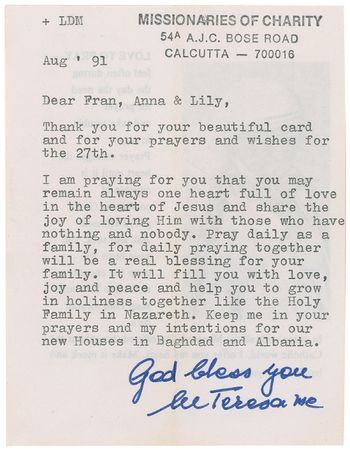 + LDM
MISSIONARIES OF CHARITY
54A A.J.C. BOSE ROAD
CALCUTTA — 700016
Aug ' 91
Dear Fran, Anna & Lily,
Thank you for your beautiful card
and for your prayers and wishes for
the 27th.
I am praying for you that you may
remain always one heart full of love
in the heart of Jesus and share the
joy of loving Him with those who have
nothing and nobody. Pray daily as a
family, for daily praying together
will be a real blessing for your
family. It will fill you with love,
joy and peace and help you to grow
in holiness together like the Holy
Family in Nazareth. Keep me in your
prayers and my intentions for our
new Houses in Baghdad and Albania.
God bless you
M Teresa mc